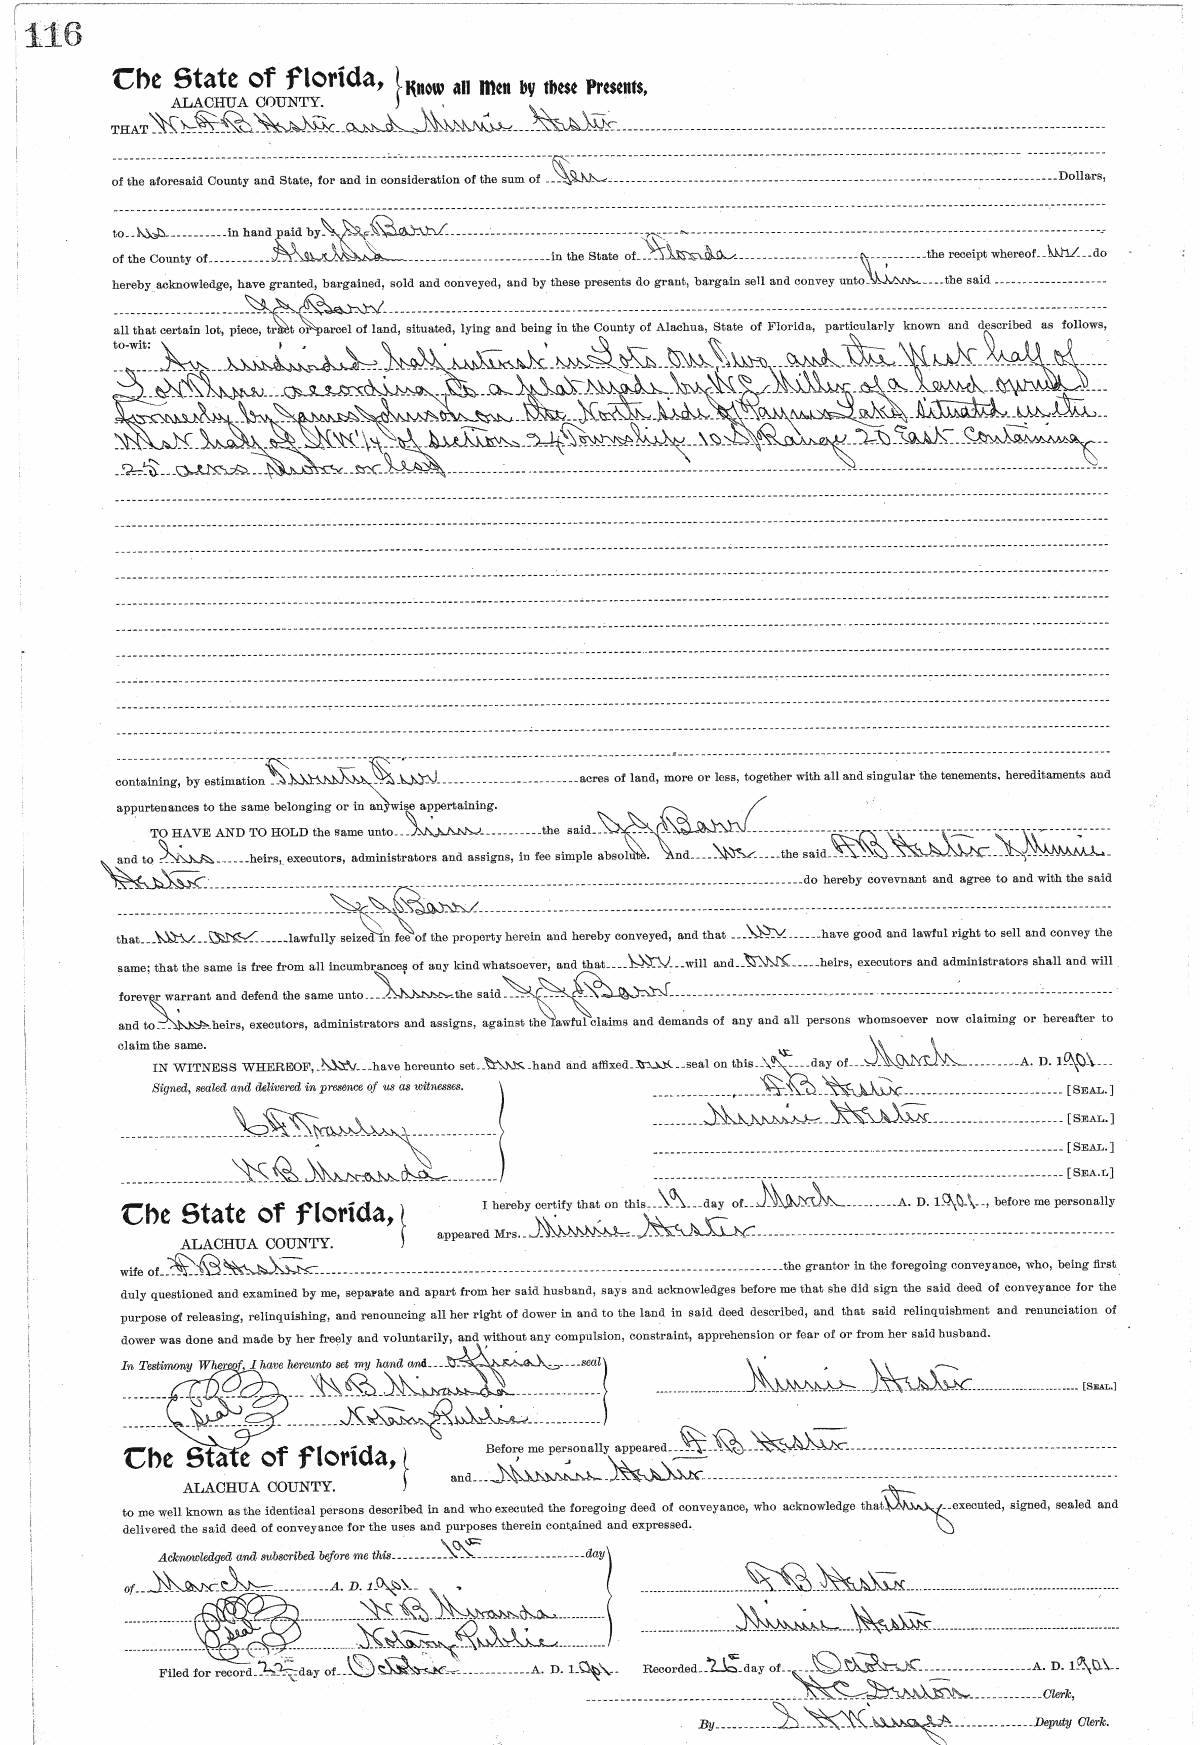 116
The State of Florida, Know all Men by these Presents,
ALACHUA COUNTY.
THAT We A B Hester and Minnie Hester
of the aforesaid County and State, for and in consideration of the sum of Ten Dollars,
to us in hand paid by J G Barr
of the County of Alachua in the State of Florida the receipt whereof we do
hereby acknowledge, have granted, bargained, sold and conveyed, and by these presents do grant, bargain sell and convey unto him the said
J G Barr
all that certain lot, piece, tract or parcel of land, situated, lying and being in the County of Alachua, State of Florida, particularly known and described as follows,
to-wit:
An undivided half interest in Lots One, Two, and the West half of
Lot Three according to a plat made by W C Miller of a land owned
formerly by James Johnson on the North side of Paynes Lake situated in the
West half of NW 1/4 of section 24 Township 10 S Range 20 East Containing
25 acres more or less
containing, by estimation Twenty Five acres of land, more or less, together with all and singular the tenements, hereditaments and
appurtenances to the same belonging or in anywise appertaining.
TO HAVE AND TO HOLD the same unto him the said J G Barr
and to his heirs, executors, administrators and assigns, in fee simple absolute. And we the said A B Hester & Minnie
Hester do hereby covevnant and agree to and with the said
J G Barr
that we are lawfully seized in fee of the property herein and hereby conveyed, and that we have good and lawful right to sell and convey the
same; that the same is free from all incumbrances of any kind whatsoever, and that we will and our heirs, executors and administrators shall and will
forever warrant and defend the same unto him the said J G Barr
and to his heirs, executors, administrators and assigns, against the lawful claims and demands of any and all persons whomsoever now claiming or hereafter to
claim the same.
IN WITNESS WHEREOF, we have hereunto set our hand and affixed our seal on this 19th day of March A. D. 1901
Signed, sealed and delivered in presence of us as witnesses. A B Hester [SEAL.]
Minnie Hester [SEAL.]
[SEAL.]
W B Miranda [SEA.L]
The State of Florida, I hereby certify that on this 19 day of March A. D. 1901, before me personally
ALACHUA COUNTY. appeared Mrs. Minnie Hester
wife of A B Hester the grantor in the foregoing conveyance, who, being first
duly questioned and examined by me, separate and apart from her said husband, says and acknowledges before me that she did sign the said deed of conveyance for the
purpose of releasing, relinquishing, and renouncing all her right of dower in and to the land in said deed described, and that said relinquishment and renunciation of
dower was done and made by her freely and voluntarily, and without any compulsion, constraint, apprehension or fear of or from her said husband.
In Testimony Whereof, I have hereunto set my hand and official seal
W B Miranda Minnie Hester [SEAL.]
seal Notary Public
The State of Florida, Before me personally appeared A B Hester
ALACHUA COUNTY. and Minnie Hester
to me well known as the identical persons described in and who executed the foregoing deed of conveyance, who acknowledge that they executed, signed, sealed and
delivered the said deed of conveyance for the uses and purposes therein contained and expressed.
Acknowledged and subscribed before me this 19th day
of March A. D. 1901 A B Hester
W B Miranda Minnie Hester
seal Notary Public
Filed for record 22 day of October A. D. 1901 Recorded 26 day of October A. D. 1901
H C Denton Clerk,
By S H Wienges Deputy Clerk.